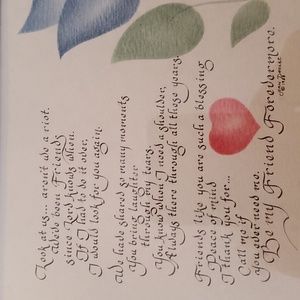 Look at us... aren't we a riot.
We've been Friends
since Lord knows when.
If I had to do it over,
I would look for you again.
We have shares so many moments
You bring laughter
through my tears.
You know when I need a shoulder,
Always there through all these years.
Friends like you are such a blessing
Peace of mind
I thank you for...
Call me if
you ever need me.
Be my Friend Forevermore.